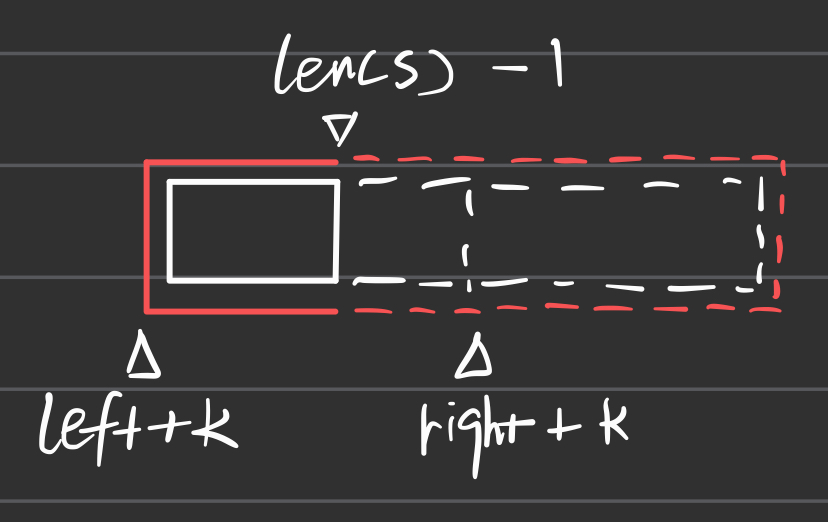 len(s) - 1
left+k
right+k